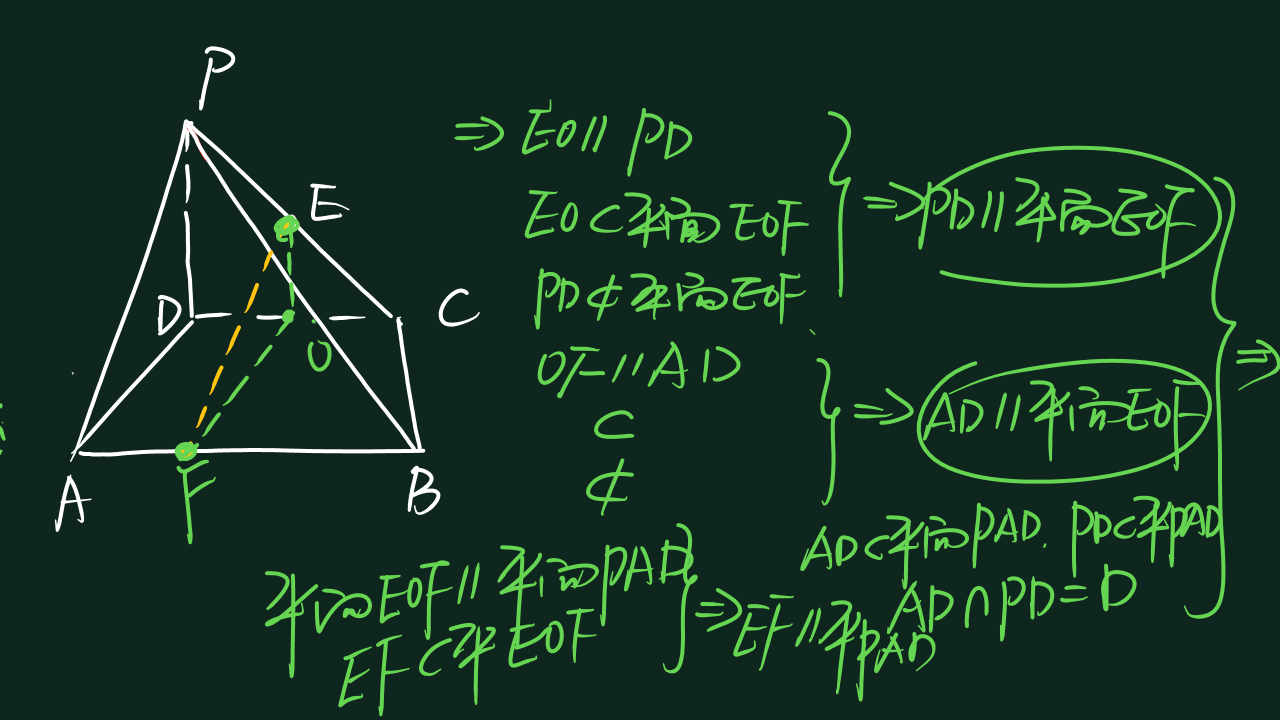 P
E
D
C
O
A
F
B
⇒ EO∥PD
EO⊂平面EOF
PD⊄平面EOF
⇒PD∥平面EOF
⇒
OF∥AD
⊂
⊄
⇒AD∥平面EOF
AD⊂平面PAD. PD⊂平PAD
AD∩PD=D
平面EOF∥平面PAD
EF⊂平EOF
⇒EF∥平PAD